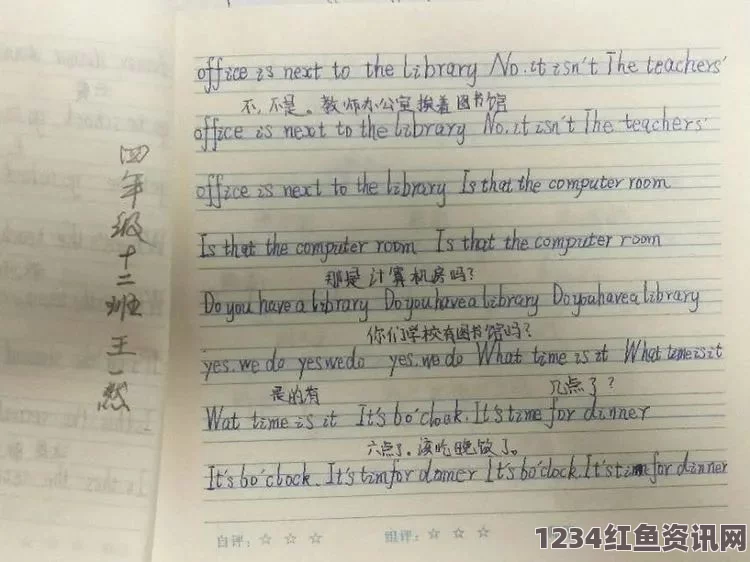 四年级十二班王一燃
office is next to the library No.it isn't The teachers'
不,不是。教师办公室挨着图书馆
office is next to the library No,it isn't The teachers'
office is next to the library Is that the computer room
Is that the computer room Is that the computer room
那是计算机房吗?
Do you have a library Do you have a library Do you have a library
你们学校有图书馆吗?
yes.we do yes we do yes.we do What time is it What time is it
是的有 几点了?
Wat time is it It's 6 o'cloak.It's time for dinner
六点了。该吃晚饭了。
It's 6 o'clock.It's tim for dinner It's 6 o'clock.It's time for dinner
自评:☆ ☆ ☆ 组评:☆ ☆ ☆
1234红鱼资讯网